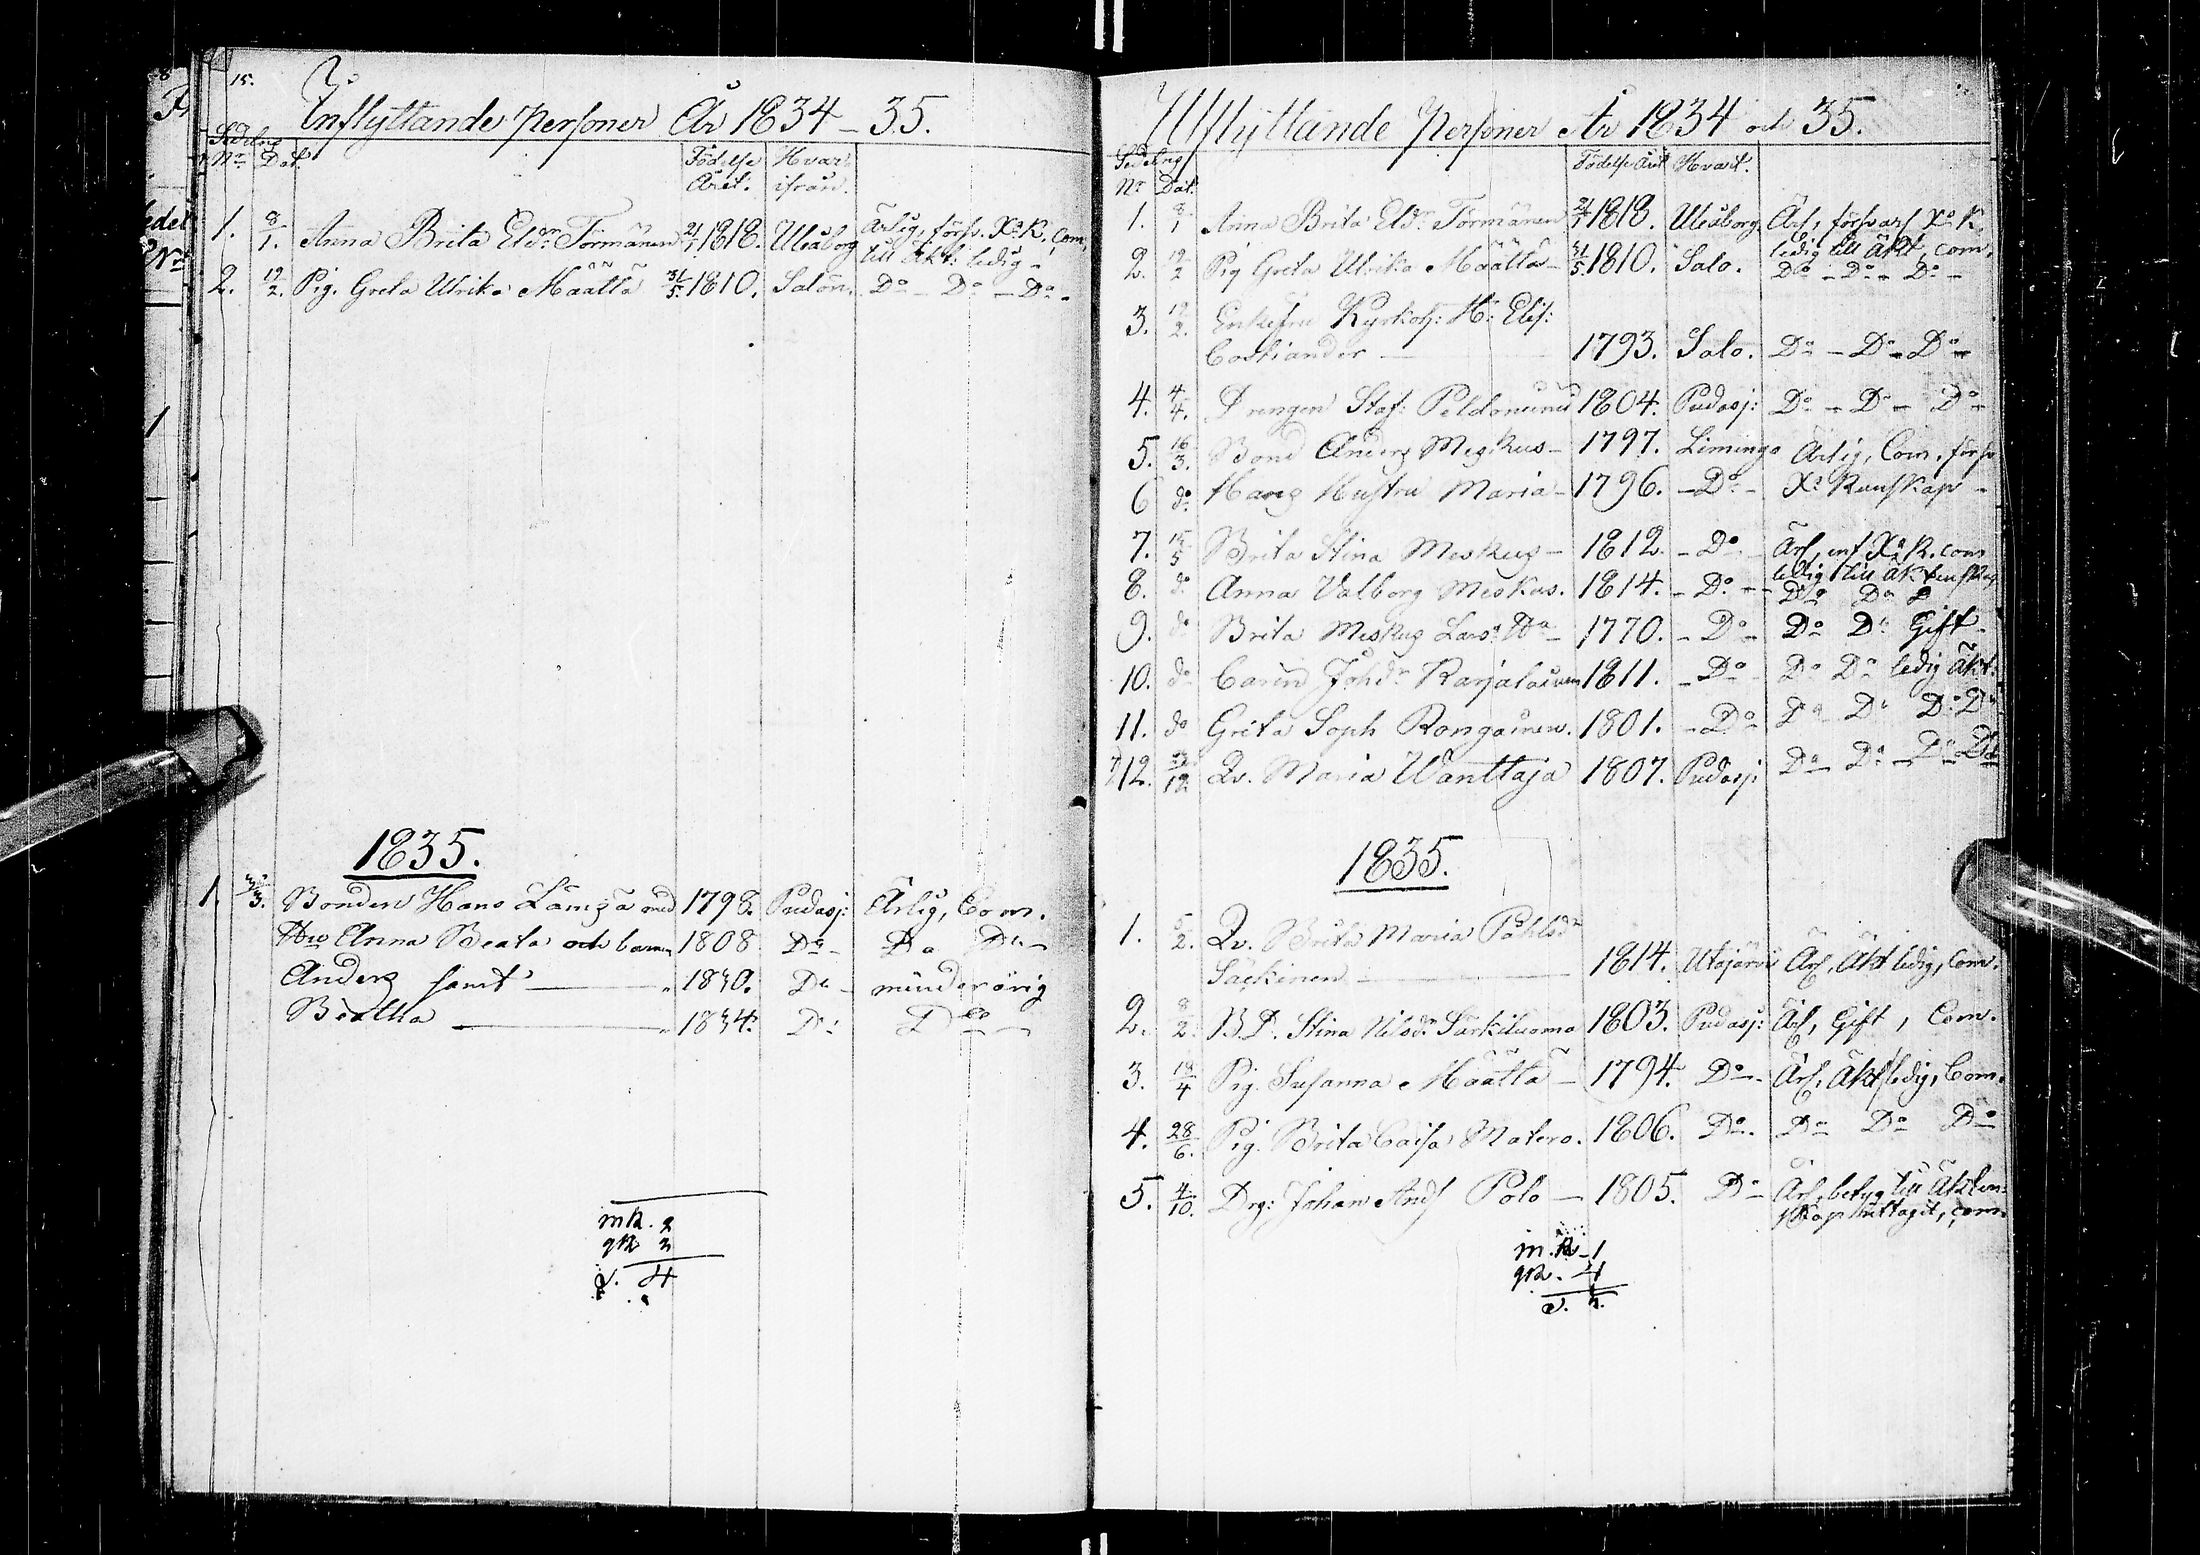 15.
Inflyttande Personer År 1834 - 35.
Sedelns
No Dat.
Födelse Året. Hvar ifrån.
1. 8/1. Anna Brita Eldr Törmänen 21/1 1818. Uleåborg Ärlig, förs. Xd. K. Com,
till äkt: ledig -
2. 12/2. Pig. Greta Ulrika Määttä 31/5. 1810. Salon. Do - Do - Do -
1835.
1. 3/3. Bonden Hans Lämsä med 1798. Pudasj: Ärlig, Com.
Hro Anna Beata och barnen 1808 Do - Do Do -
Anders samt - 1830. Do - minderårig
Beatha - 1834. Do Do -
mk. 2
qk 2
S. 4
Utflyttande Personer År 1834 och 35.
Sedelns
No Dat.
Födelse Året Hvart.
1. 8/1 Anna Brita Eldr Törmänen 21/1 1818. Uleåborg Ärl, försvarl Xd. K.
ledig till äkt, com,
2. 12/2 Pig Greta Ulrika Määttä - 31/5. 1810. Salo. Do - Do - Do -
3. 12/2. Enkefru Kyrkoh: Ha Elis:
Costiander - 1793. Salo. Do - Do - Do -
4. 4/4. Drengen Staf: Peldoniemi 1804. Pudasj: Do - Do - Do -
5. 16/3. Bond Anders Meskus - 1797. Limingo Ärlig, Com. förs
6 do Hans Hustru Maria - 1796. - Do - Xd. Kunskap -
7. 15/5 Brita Stina Meskus - 1812. - Do - Ärl, Xd. K. com
ledig till äktenskap
8. do Anna Valborg Meskus. 1814. - Do - Do Do
9. do Brita Meskus Lars: Ha 1770. - Do - Do Do Gift -
10. do Carin Johdr Karjalainen 1811. - Do - Do Do ledig äkt:
11. do Greta Soph Rongainen. 1801. - Do - Do - Do Do Do
12. 12 Qv. Maria Wänttäjä 1807. Pudasj: Do - Do - Do Do
1835.
1. 5/2. Qv. Brita Maria Påhlsdr
Säckinen - 1814. Utajärvi Ärl, Äkt ledig, Com.
2. 8/2. B.D. Stina Nilsdr Särkiluoma 1803. Pudasj: Ärl, Gift, Com.
3. 18/4 Pig. Susanna Määttä - 1794. Do - Ärl, Äkt ledig, Com.
4. 28/6. Pig. Brita Caisa Matero. 1806. Do. Do Do Do
5. 4/10. Drg: Johan And Polo - 1805. Do - Ärl, betyg till Äkten-
skap uttagit, com
m.k - 1
qk. 4
S. 5.